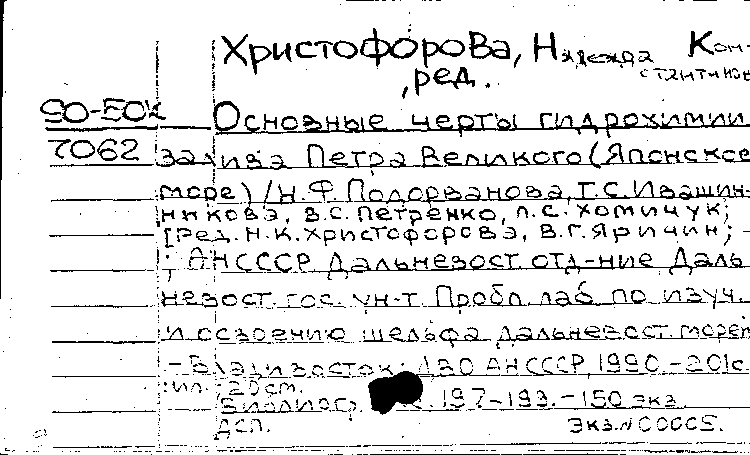 Христофорова, Надежда Кон-
стантинов
, ред.
90-50К Основные черты гидрохимии
7062 залива Петра Великого (Японское
море) / Н.Ф. Подорванова, Т.С. Ивашин-
никова, В.С. Петренко, Л.С. Хомичук;
[Ред. Н.К. Христофорова, В.Г. Яричин; -
; АН СССР Дальневост. отд-ние Даль
невост. гос. ун-т. Пробл. лаб. по изуч.
и освоению шельфа дальневост. морей
- Владивосток: ДВО АН СССР, 1990. - 201с.
: ил. 20 см.
Библиогр. с. 197-199. - 150 экз
ДСП. Экз. N 00005.